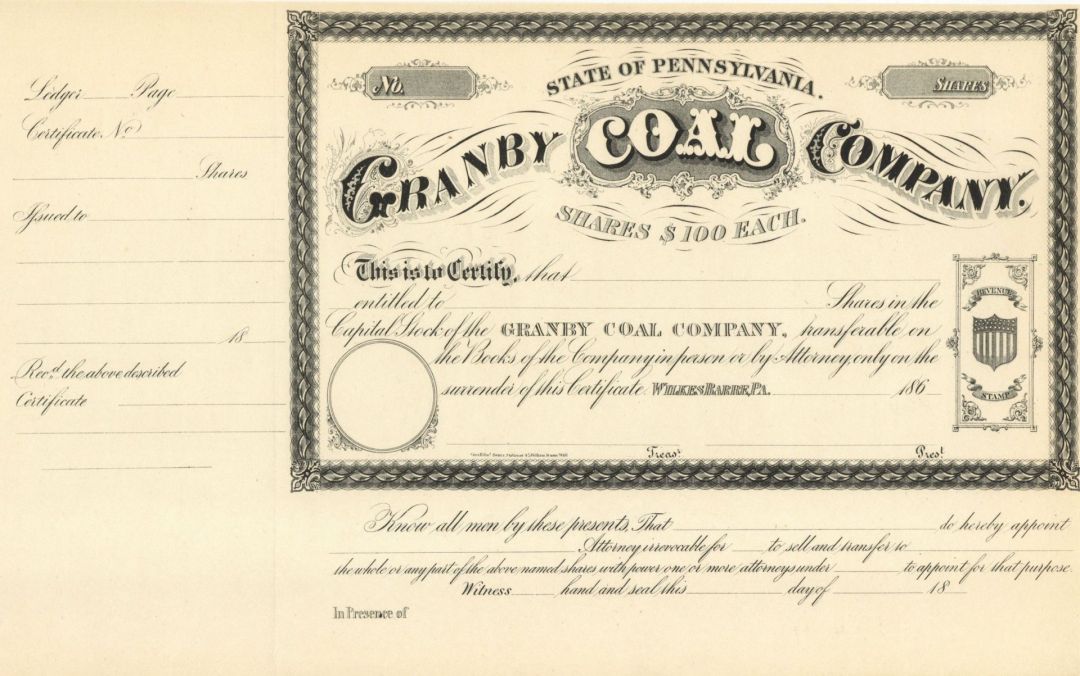 Ledger Page
Certificate. No
Shares
Issued to
18
Rec.d the above described
Certificate
No.
STATE OF PENNSYLVANIA.
SHARES
GRANBY COAL COMPANY.
SHARES $100 EACH.
This is to Certify, that
entitled to Shares in the
Capital Stock of the GRANBY COAL COMPANY, transferable on
the Books of the Company in person or by Attorney, only on the
surrender of this Certificate. WILKESBARRE, PA. 186
REVENUE
STAMP
Treas.r Pres.t
Know all men by these presents, That do hereby appoint
Attorney irrevocable for to sell and transfer to
the whole or any part of the above named shares with power one or more attorneys under to appoint for that purpose.
Witness hand and seal this day of 18
In Presence of